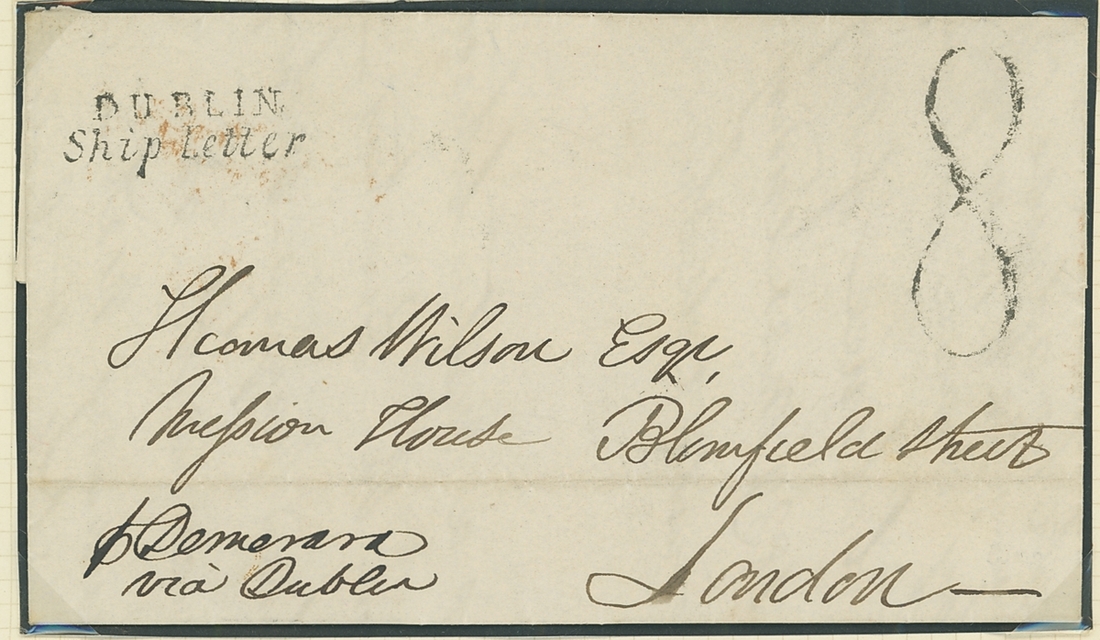 DUBLIN
Ship Letter
8
Thomas Wilson Esqr,
Mission House Blomfield Street
London
p Demerara
via Dublin